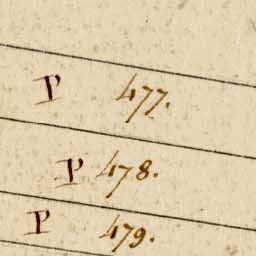 P 477.
P 478.
P 479.